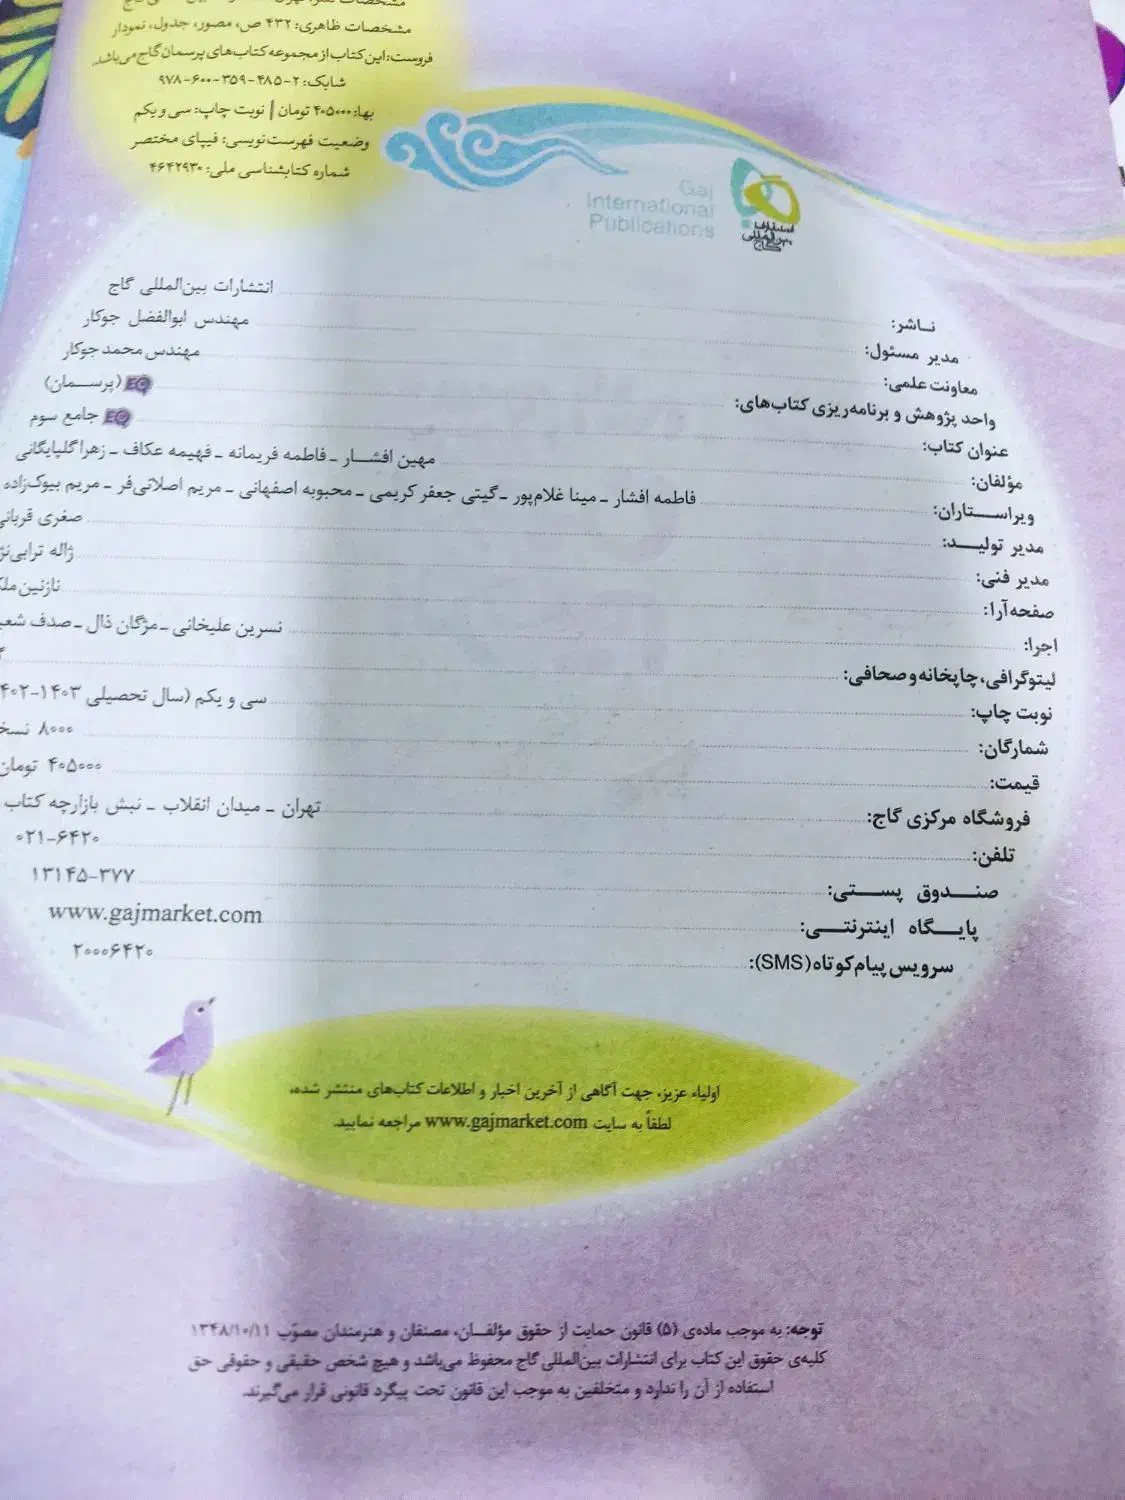 مشخصات ظاهری: ۴۳۲ ص، مصور، جدول، نمودار
فروست: این کتاب از مجموعه کتاب‌های پرسمان گاج می‌باشد.
شابک: ۲-۴۸۵-۳۵۹-۶۰۰-۹۷۸
بها: ۴۰۵۰۰۰ تومان | نوبت چاپ: سی و یکم
وضعیت فهرست‌نویسی: فیپای مختصر
شماره کتابشناسی ملی: ۴۶۴۲۹۳۰
Gaj
International
Publications
انتشارات
بین‌المللی
گاج
ناشر: انتشارات بین‌المللی گاج
مدیر مسئول: مهندس ابوالفضل جوکار
معاونت علمی: مهندس محمد جوکار
واحد پژوهش و برنامه‌ریزی کتاب‌های: EQ (پرسمان)
عنوان کتاب: EQ جامع سوم
مؤلفان: مهین افشار ـ فاطمه فریمانه ـ فهیمه عکاف ـ زهرا گلپایگانی
ویراستاران: فاطمه افشار ـ مینا غلام‌پور ـ گیتی جعفر کریمی ـ محبوبه اصفهانی ـ مریم اصلانی‌فر ـ مریم بیوک‌زاده
مدیر تولید: صغری قربانی
مدیر فنی: ژاله
صفحه‌آرا: نازنین
اجرا: نسرین علیخانی ـ مژگان ذال ـ صدف
لیتوگرافی، چاپخانه و صحافی:
نوبت چاپ: سی و یکم (سال تحصیلی ۱۴۰۳-
شمارگان: ۸۰۰۰
قیمت: ۴۰۵۰۰۰ تومان
فروشگاه مرکزی گاج: تهران ـ میدان انقلاب ـ نبش بازارچه کتاب
تلفن: ۰۲۱-۶۴۲۰
صندوق پستی: ۱۳۱۴۵-۳۷۷
پایگاه اینترنتی: www.gajmarket.com
سرویس پیام کوتاه (SMS): ۲۰۰۰۶۴۲۰
اولیاء عزیز، جهت آگاهی از آخرین اخبار و اطلاعات کتاب‌های منتشر شده،
لطفاً به سایت www.gajmarket.com مراجعه نمایید.
توجه: به موجب ماده‌ی (۵) قانون حمایت از حقوق مؤلفان، مصنفان و هنرمندان مصوّب ۱۳۴۸/۱۰/۱۱
کلیه‌ی حقوق این کتاب برای انتشارات بین‌المللی گاج محفوظ می‌باشد و هیچ شخص حقیقی و حقوقی حق
استفاده از آن را ندارد و متخلفین به موجب این قانون تحت پیگرد قانونی قرار می‌گیرند.